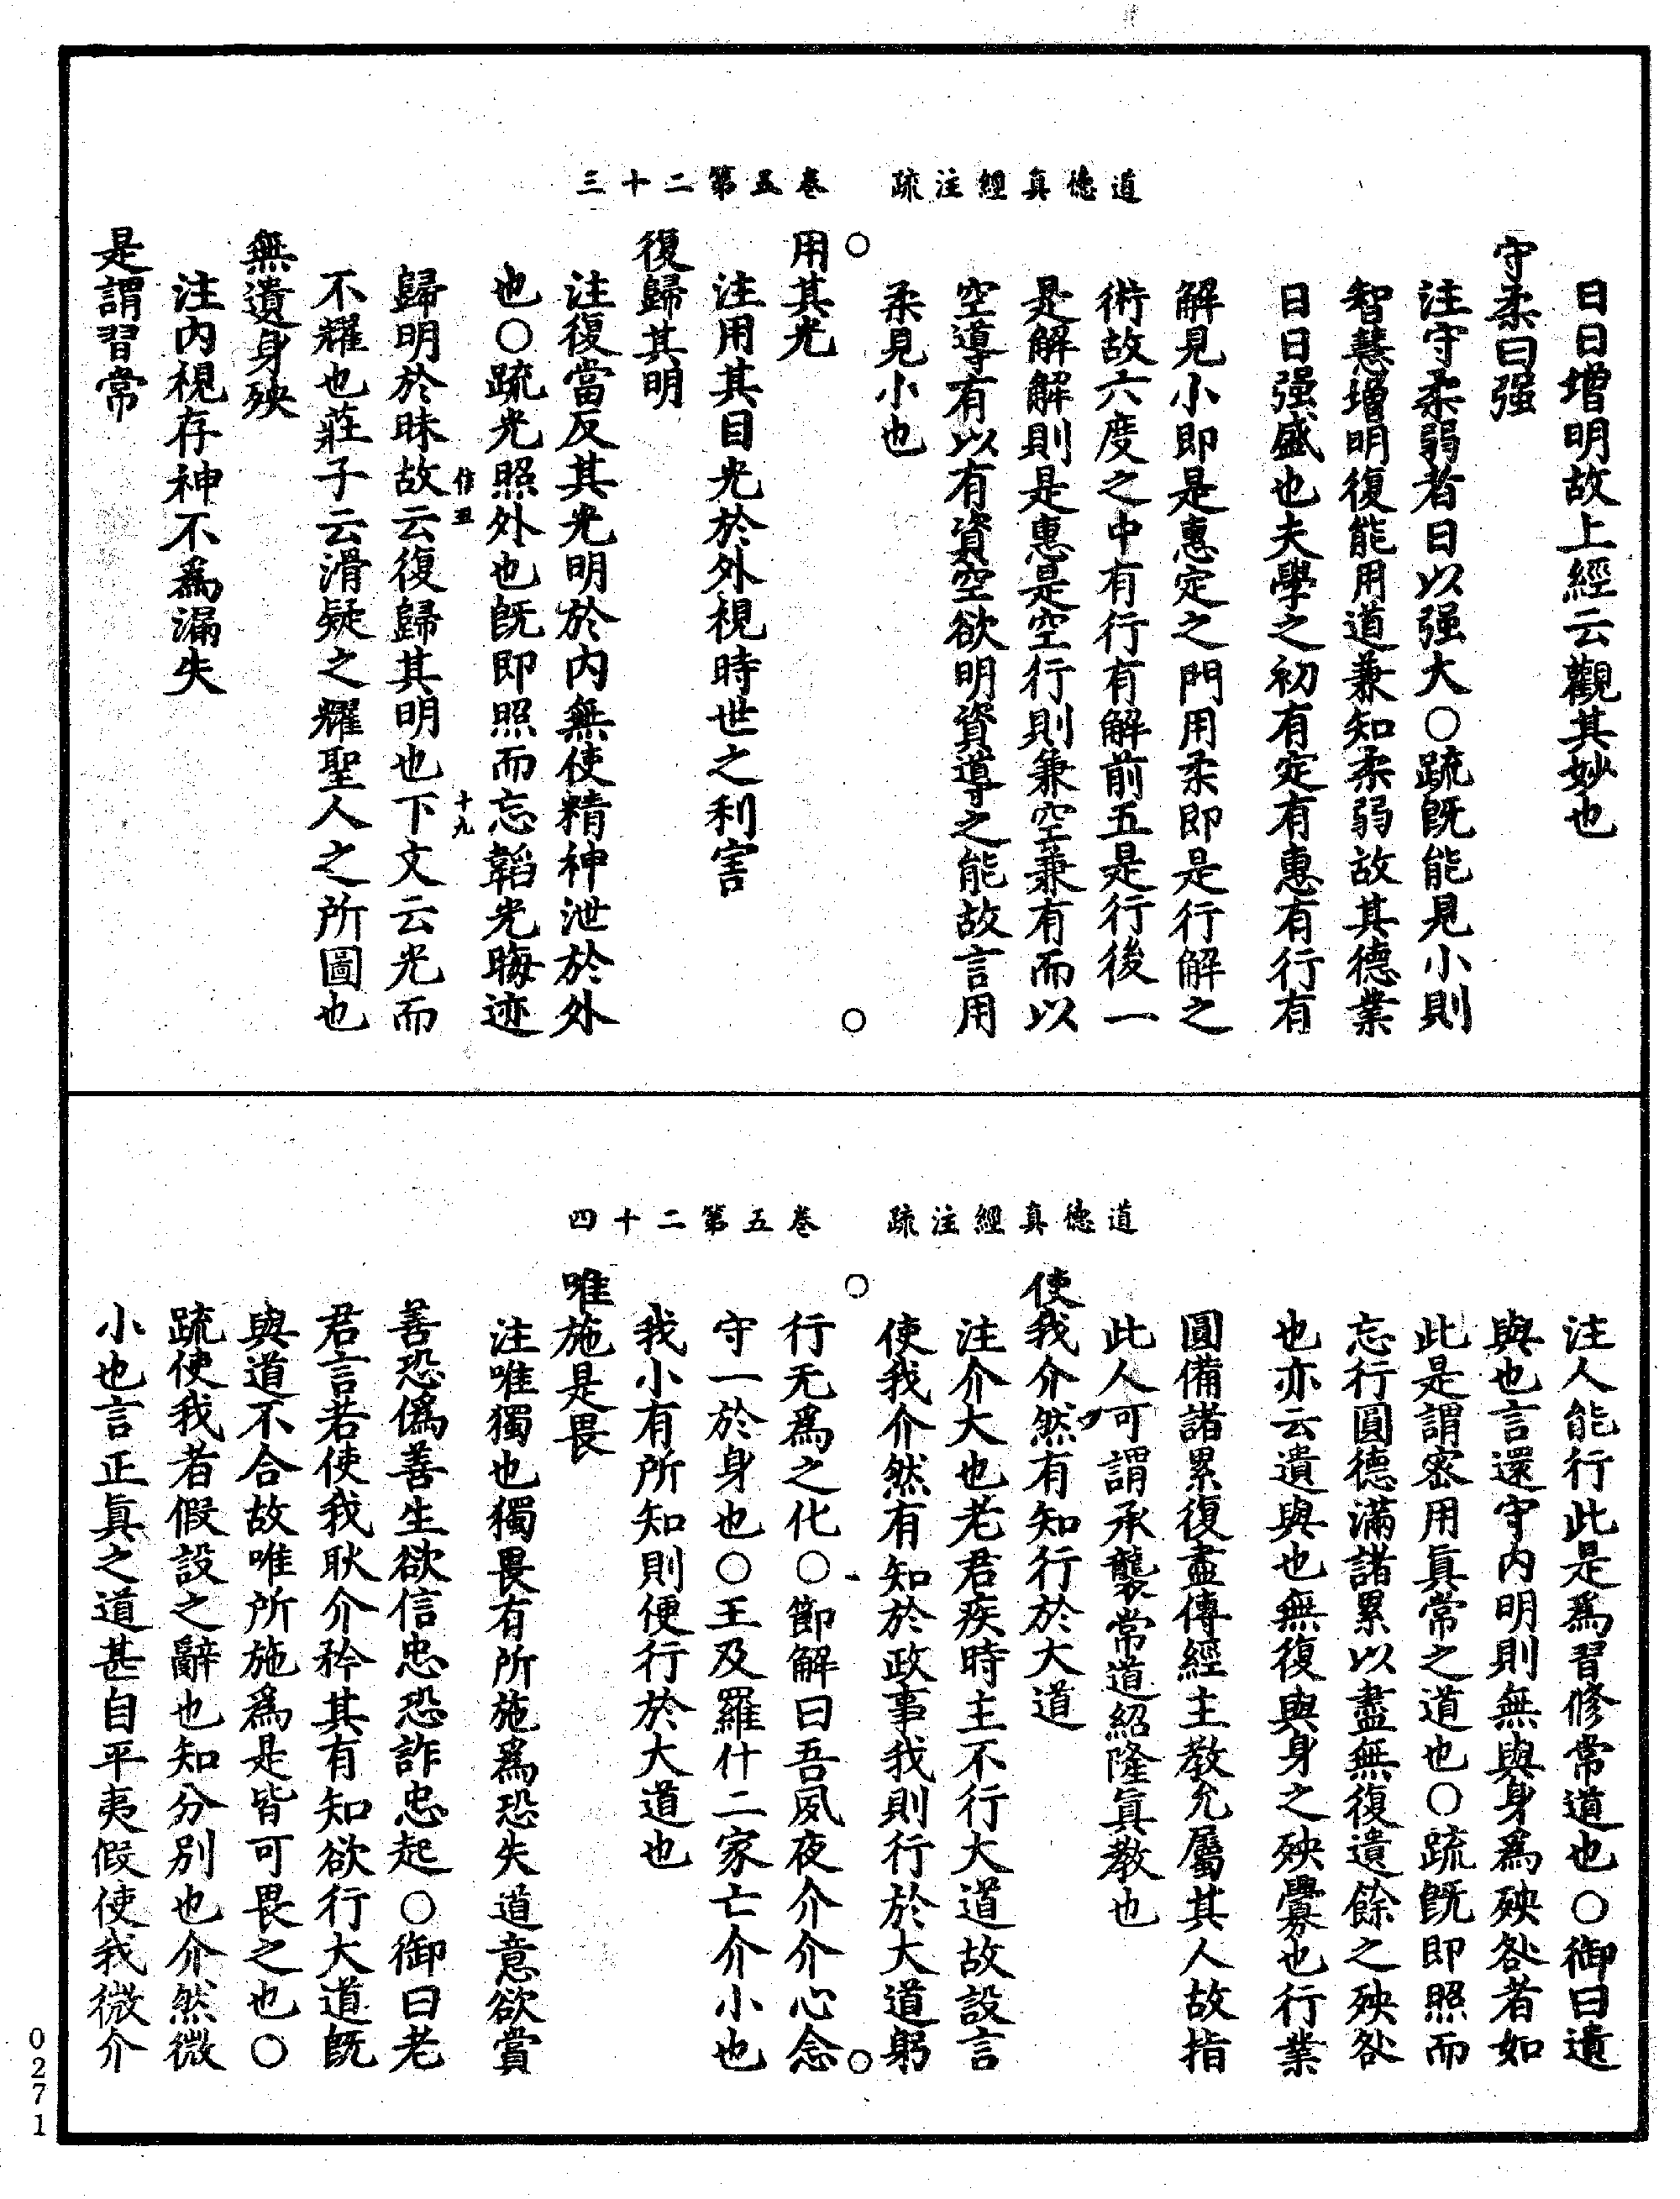 道德真經注疏　卷五第二十三
日日增明故上經云觀其妙也
守柔曰强
注守柔弱者日以强大○疏既能見小則
智慧增明復能用道兼知柔弱故其德業
日日强盛也夫學之初有定有惠有行有
解見小即是惠定之門用柔即是行解之
術故六度之中有行有解前五是行後一
是解解則是惠是空行則兼空兼有而以
空導有以有資空欲明資導之能故言用
柔見小也
用其光
注用其目光於外視時世之利害
復歸其明
注復當反其光明於內無使精神泄於外
也○疏光照外也既即照而忘韜光晦迹
信五　十九
歸明於昧故云復歸其明也下文云光而
不耀也莊子云滑疑之耀聖人之所圖也
無遺身殃
注內視存神不爲漏失
是謂習常
道德真經注疏　卷五第二十四
注人能行此是爲習修常道也○御曰遺
與也言還守內明則無與身爲殃咎者如
此是謂密用眞常之道也○疏既即照而
忘行圓德滿諸累以盡無復遺餘之殃咎
也亦云遺與也無復與身之殃舋也行業
圓備諸累復盡傳經主教允屬其人故指
此人可謂承襲常道紹隆眞教也
使我介然有知行於大道
注介大也老君疾時主不行大道故設言
使我介然有知於政事我則行於大道躬
行无爲之化○節解曰吾夙夜介介心念
守一於身也○王及羅什二家亡介小也
我小有所知則便行於大道也
唯施是畏
注唯獨也獨畏有所施爲恐失道意欲賞
善恐僞善生欲信忠恐詐忠起○御曰老
君言若使我耿介矜其有知欲行大道既
與道不合故唯所施爲是皆可畏之也○
疏使我者假設之辭也知分別也介然微
小也言正眞之道甚自平夷假使我微介
0271